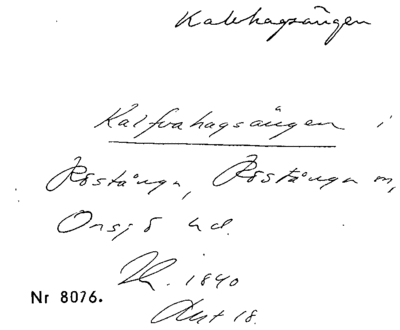 Kalvhagsängen
Kalfvahagsängen i
Röstånga, Röstånga sn,
Onsjö hd.
1840
Nr 8076.
Akt 18.